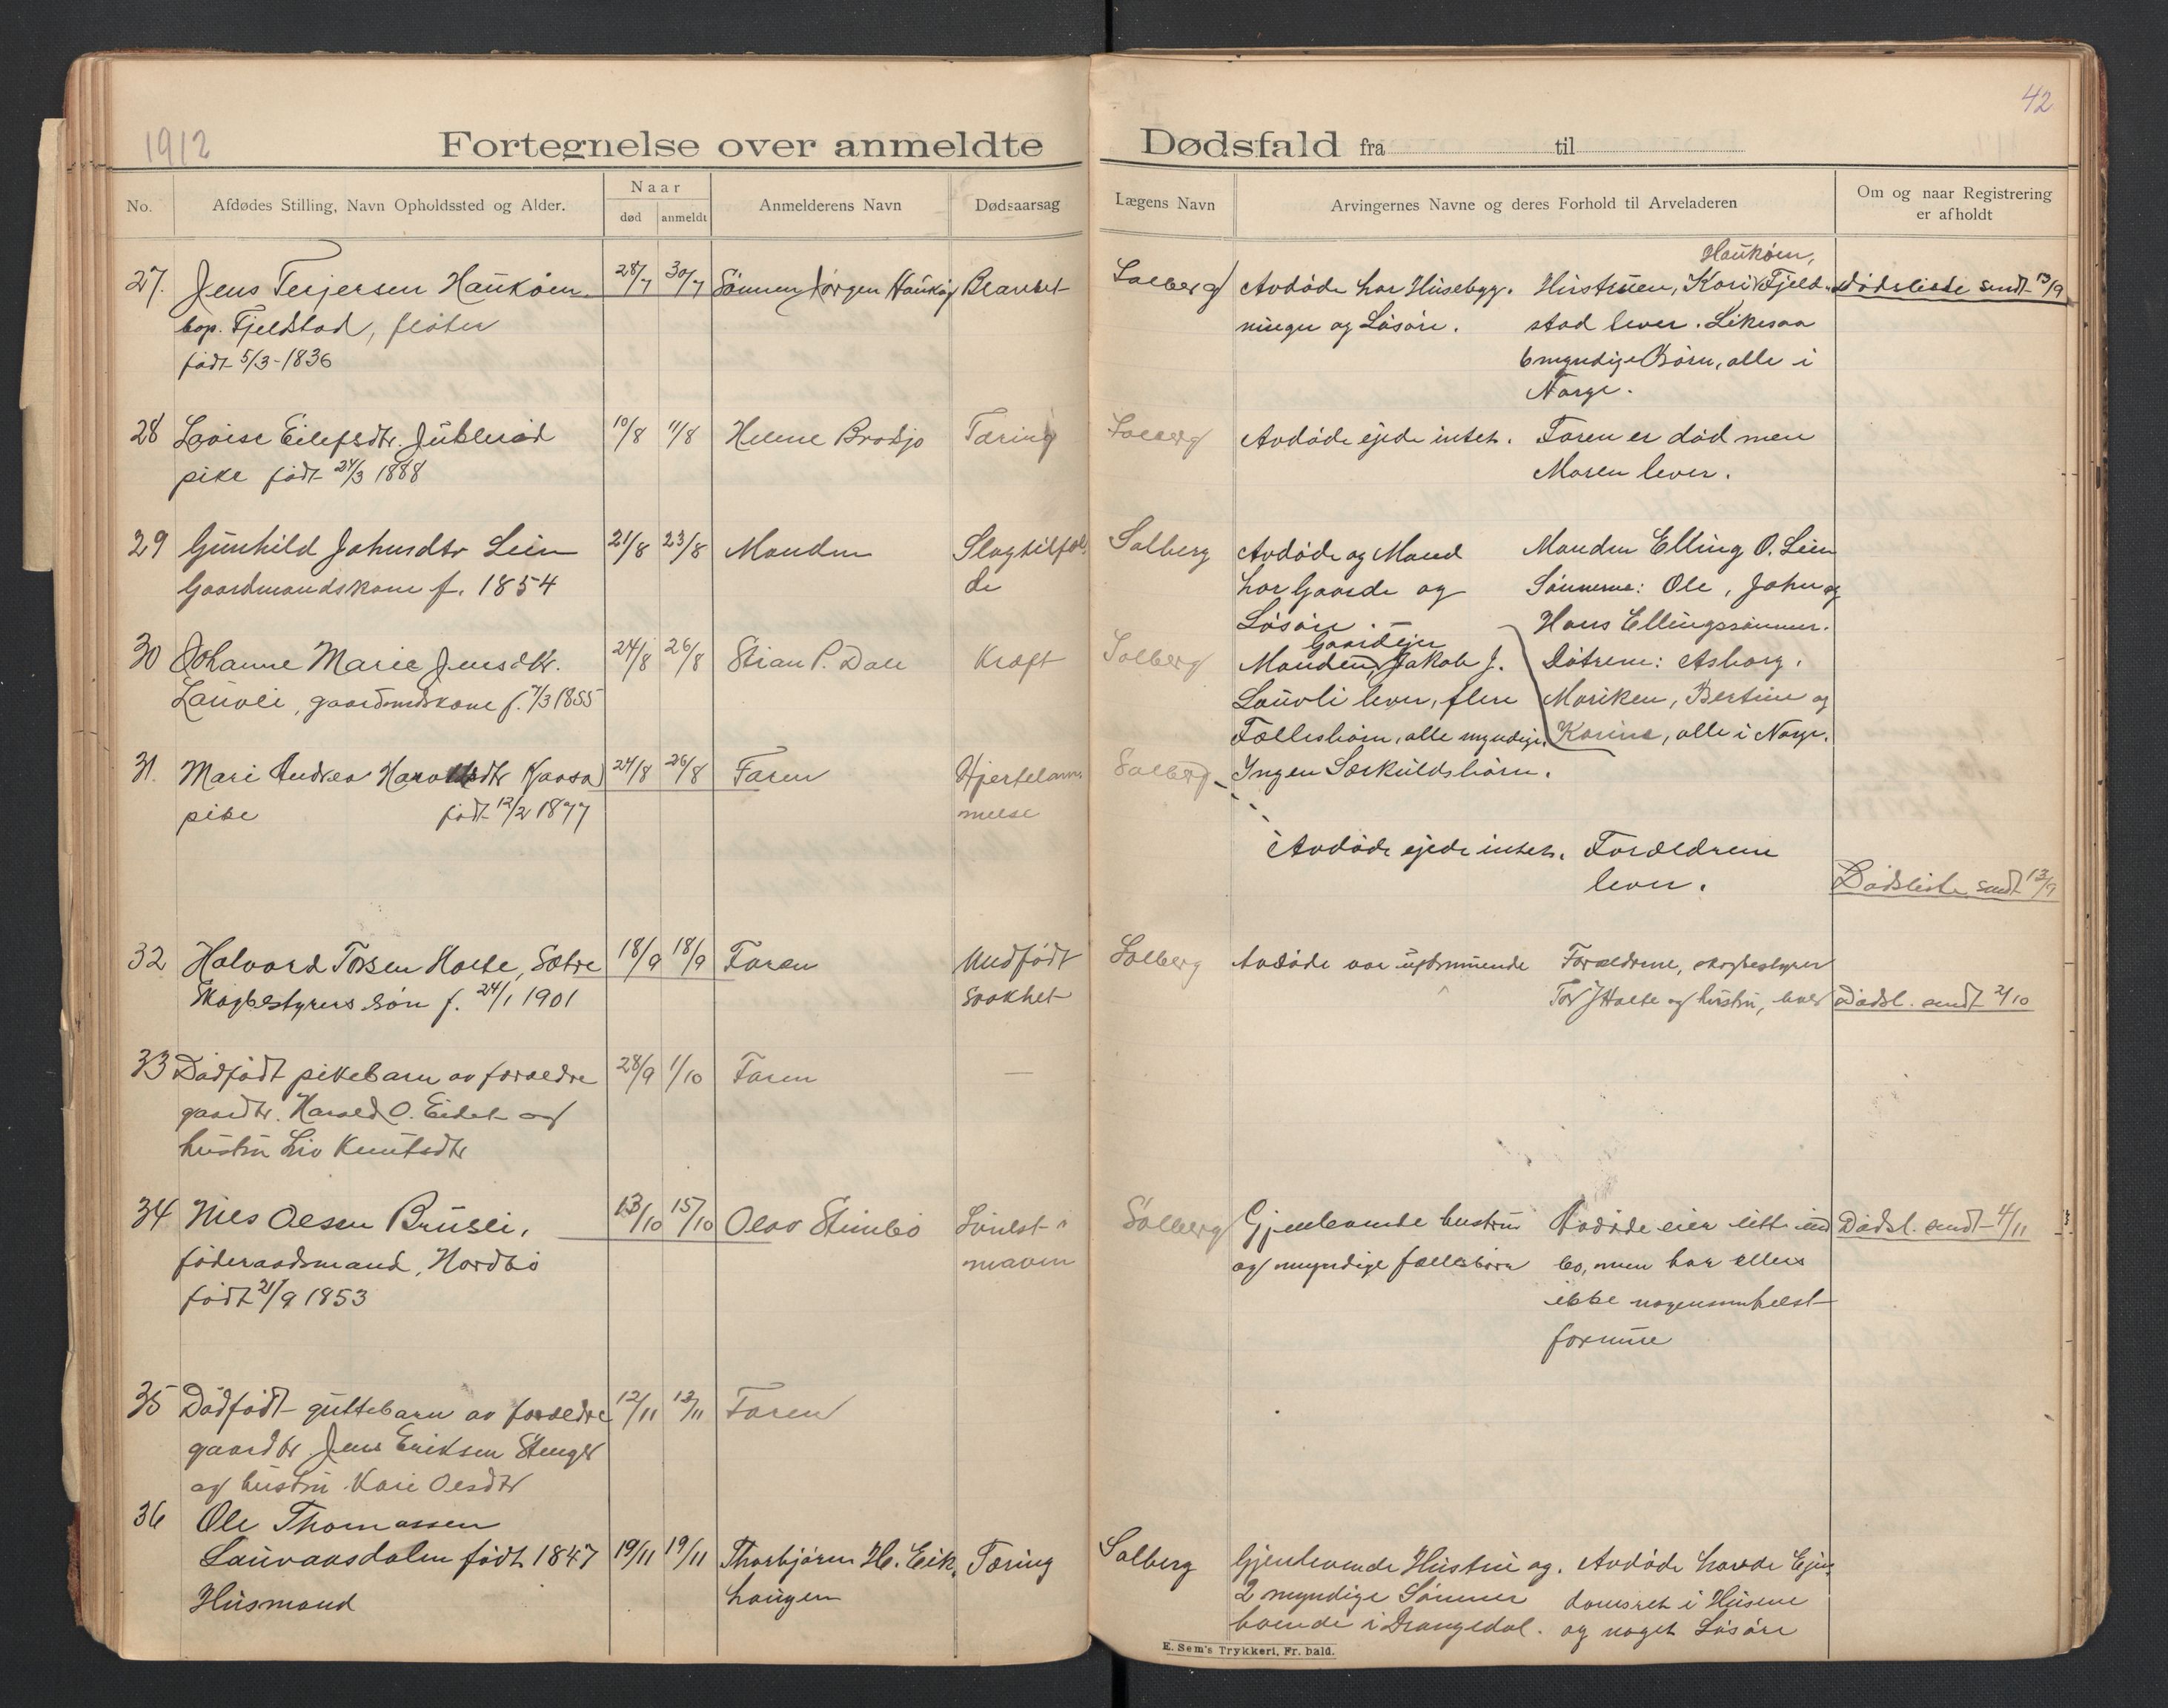 42
1912
Fortegnelse over anmeldte Dødsfald fra til
No.
Afdødes Stilling, Navn Opholdssted og Alder.
Naar
død
anmeldt
Anmelderens Navn
Dødsaarsag
Lægens Navn
Arvingernes Navne og deres Forhold til Arveladeren
Om og naar Registrering
er afholdt
27. Jens Terjersen Haukom
bop. Fjeldstad, fløter
født 5/3-1836
28/7 30/7 Sønnen Jørgen
Solberg
Avdøde har Husebyg-
ninger og Løsøre.
Haukom,
Hustruen, Kari Fjeld-
stad lever. Likesaa
6 myndige Børn, alle i
Norge.
Dødsliste sendt 13/9
28 Lovise Eilefsdtr.
pike født 24/3 1888
10/8 11/8 Helene Brødsjø Tæring
Solberg
Avdøde ejede intet. Faren er død men
Moren lever.
29 Gunhild Johnsdtr Lien
Gaardmandskone f. 1854
21/8 23/8 Manden
Slagtilfæl-
de
Solberg
Avdøde og Mand
har Gaarde og
Løsøre.
Manden Elling O. Lien
Sønnerne: Ole, John og
Hans Ellingssønner.
Døtrene: Asborg,
Mariken, Bertine og
Karine, alle i Norge.
30 Johanne Marie Jensdtr.
Lauvli, gaardmdskone f. 7/3 1855
24/8 26/8 Stian P. Dale Kræft
Solberg
Gaardejer
Manden, Jakob J.
Lauvli lever, flere
Fællesbørn, alle myndige.
Ingen Særkuldsbørn.
31. Mari Andrea Haroldsdtr Kjaasa
pike født 12/2 1877
24/8 26/8 Faren
Hjertelam-
melse
Solberg
Avdøde ejede intet. Forældrene
lever.
Dødsliste sendt 13/9
32 Halvord Torsen Holte, Sætre
Skogbestyrers søn f. 24/1 1901
18/9 18/9 Faren
Medfødt
svakhet
Solberg
Avdøde var
Forældrene, skogbestyrer
Tor J Holte og hustru, lever
Dødsl. sendt 2/10
33 Dødfødt pikebarn av forældre
gaardbr. Harald O. Eidet og
hustru Liv Knutsdtr
28/9 1/10 Faren —
34 Nils Olsen Brusli,
føderaadsmand, Nordbø
født 21/9 1853
13/10 15/10 Olav Stimbo
i
maven
Solberg
Gjenlevende hustru
og myndige fællesbørn
Avdøde eier litt ind
bo, men har ellers
ikke nogensomhelst
formue
Dødsl. sendt 4/11
35 Dødfødt guttebarn av forældre
gaardbr. Jens Eriksen
og hustru Kari Olsdtr
12/11 13/11 Faren
36 Ole Thomassen
Lauvaasdalen født 1847
Husmand
19/11 19/11 Thorbjørn H. Eik-
haugen
Tæring
Solberg
Gjenlevende Hustru og
2 myndige Sønner
boende i Drangedal.
Avdøde havde Ejen-
domsret i Husene
og noget Løsøre
E. Sem's Trykkeri, Fr. hald.